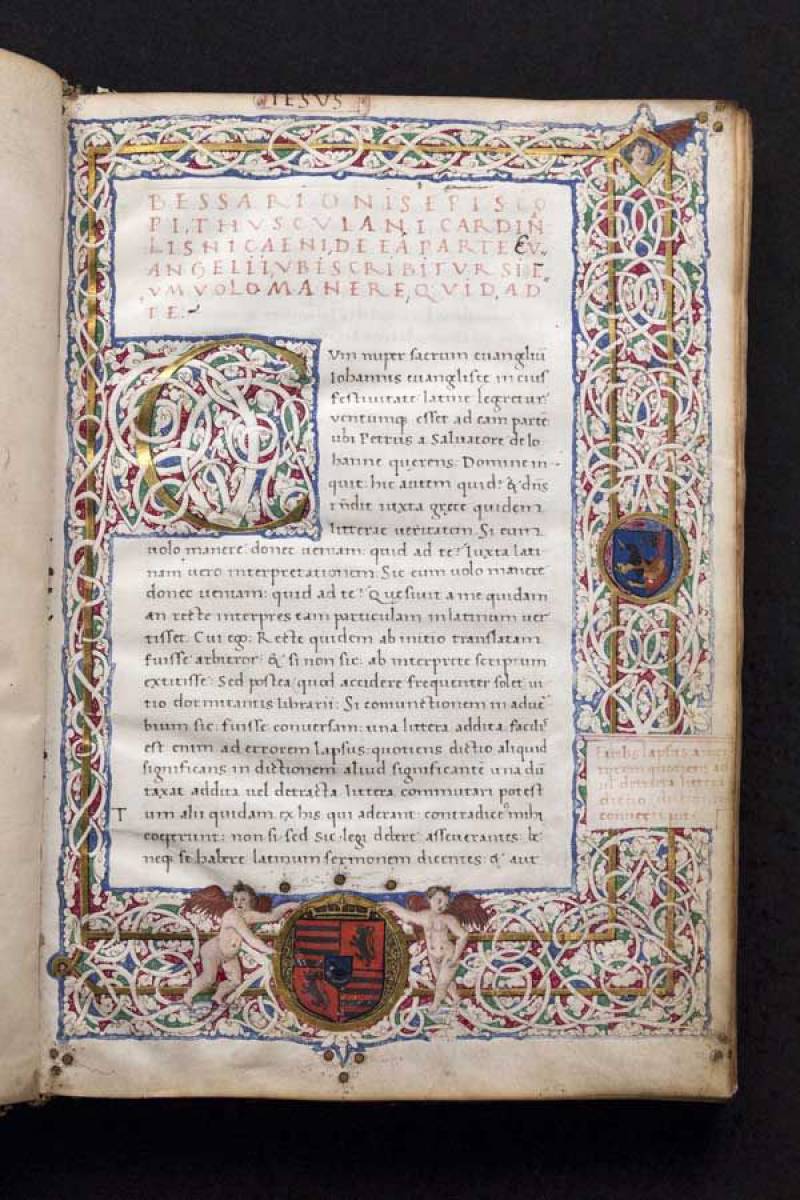 IESVS
BESSARIONIS EPISCO
PI, THVSCVLANI CARDIN
LIS NICAENI, DE EA PARTE EV
ANGELII, VBI SCRIBITVR SI E
VM VOLO MANERE, QVID, AD
TE:
CVm nuper sacrum euangliũ
Iohannis euangliste in eius
festiuitate latine legretur
ventumq esset ad eam partẽ
ubi Petrus a Saluatore de Io
hanne querens: Domine in
quit: hic autem quid? & dñs
rñdit iuxta grece quidem
litterae ueritatem. Si eum
uolo manere donec ueniam quid ad te? Iuxta lati
nam uero interpretationem: Sic eum uolo manere
donec ueniam: quid ad te? Quesiuit a me quidam
an recte interpres eam particulam in latinum uer
tisset. Cui ego: Recte quidem ab initio translatam
fuisse arbitror: & si non sic: ab interprete scriptum
extitisse: Sed postea: quod accidere frequenter solet ui
tio dormitantis librarii: Si coniunctionem in aduer
bium sic: fuisse conuersam: una littera addita. facilis
est enim ad errorem lapsus: quotiens dictio aliquid
significans in dictionem aliud significantẽ una dũ
taxat addita uel detracta littera commutari potest
T um alii quidam ex his qui aderant: contradicere mihi
coeperunt: non si sed sic legi debere asseuerantes: le
neq se habere latinum sermonem dicentes: & aut
lapsus
quotiens
detracta littera
dictio